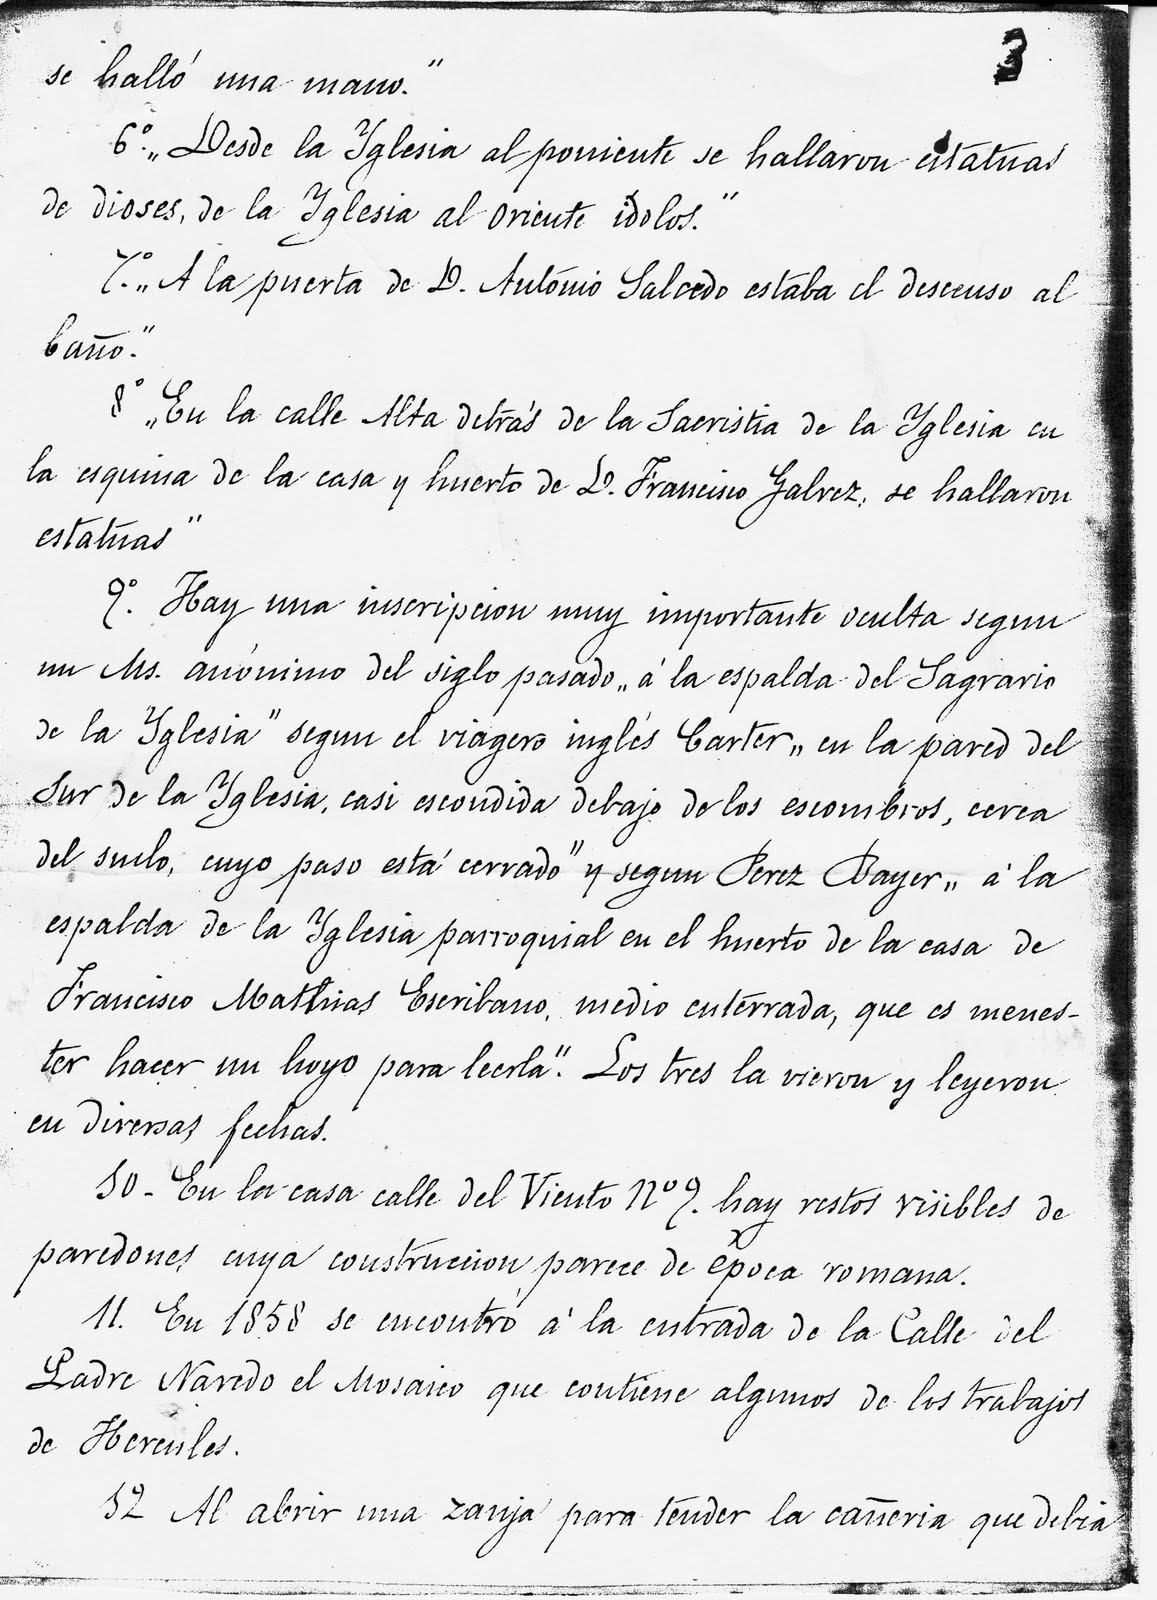 3
se halló una mano."
6º. „Desde la Yglesia al poniente se hallaron estatuas
de dioses, de la Yglesia al oriente idolos."
7º. „A la puerta de D. António Salcedo estaba el descenso al
baño."
8º „En la calle Alta detrás de la Sacristia de la Yglesia en
la esquina de la casa y huerto de D. Francisco Galvez, se hallaron
estatuas"
9º. Hay una inscripcion muy importante oculta segun
un Ms. anónimo del siglo pasado „á la espalda del Sagrario
de la Yglesia" segun el viagero inglés Carter „en la pared del
Sur de la Yglesia, casi escondida debajo de los escombros, cerca
del suelo, cuyo paso está cerrado" y segun Perez Bayer „á la
espalda de la Yglesia parroquial en el huerto de la casa de
Francisco Mathias Escribano, medio enterrada, que es menes-
ter hacer un hoyo para leerla". Los tres la vieron y leyeron
en diversas fechas.
10 - En la casa calle del Viento Nº 9. hay restos visibles de
paredones cuya construccion parece de época romana.
11. En 1858 se encontró á la entrada de la Calle del
Padre Naredo el Mosaico que contiene algunos de los trabajos
de Hercules.
12 Al abrir una zanja para tender la cañeria que debia